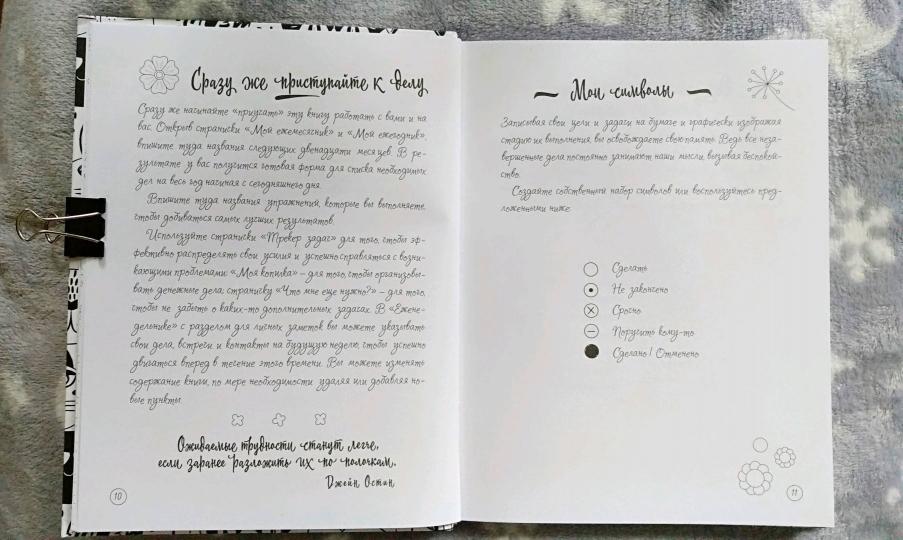 Сразу же приступайте к делу
Сразу же начинайте «приучать» эту книгу работать с вами и на
вас. Открыв страницы «Мой ежемесячник» и «Мой ежегодник»,
впишите туда названия следующих двенадцати месяцев. В ре-
зультате у вас получится готовая форма для списка необходимых
дел на весь год начиная с сегодняшнего дня.
Впишите туда названия упражнений, которые вы выполняете,
чтобы добиваться самых лучших результатов.
Используйте страницы «Трекер задач» для того, чтобы эф-
фективно распределять свои усилия и успешно справляться с возни-
кающими проблемами; «Моя копилка» – для того, чтобы организовы-
вать денежные дела; страницу «Что мне еще нужно?» – для того,
чтобы не забыть о каких-то дополнительных задачах. В «Ежене-
дельнике» с разделом для личных заметок вы можете указывать
свои дела, встречи и контакты на будущую неделю, чтобы успешно
двигаться вперед в течение этого времени. Вы можете изменять
содержание книги, по мере необходимости удаляя или добавляя но-
вые пункты.
Ожидаемые трудности станут легче,
если заранее разложить их по полочкам.
Джейн Остин
10
Мои символы
Записывая свои цели и задачи на бумаге и графически изображая
стадию их выполнения, вы освобождаете свою память. Ведь все неза-
вершенные дела постоянно занимают наши мысли, вызывая беспокой-
ство.
Создайте собственный набор символов или воспользуйтесь пред-
ложенными ниже.
Сделать
Не закончено
Срочно
Поручить кому-то
Сделано / Отменено
11